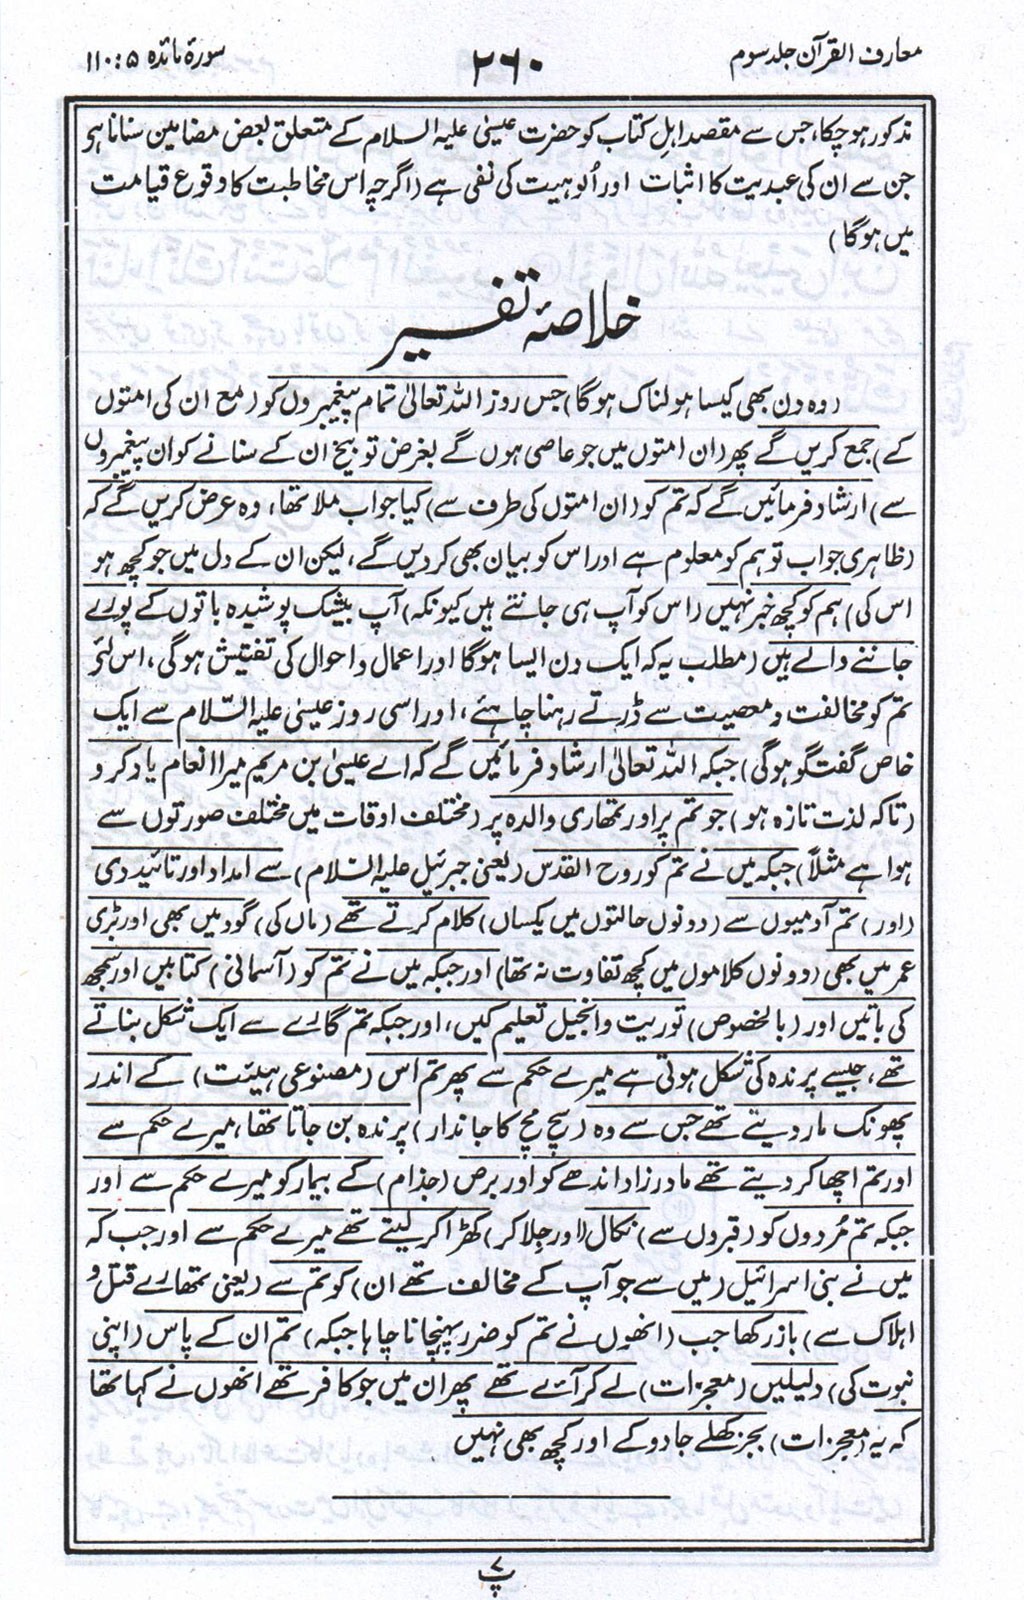 معارف القرآن جلد سوم
۲۶۰
سورۂ مائدہ ۵ : ۱۱۰
مذکور ہوچکا، جس سے مقصد اہلِ کتاب کو حضرت عیسیٰ علیہ السلام کے متعلق بعض مضامین سنانا ہو
جن سے ان کی عبدیت کا اثبات اور اُلوہیت کی نفی ہے (اگرچہ اس مخاطبت کا وقوع قیامت
میں ہوگا)
خلاصۂ تفسیر
(وہ دن بھی کیسا ہولناک ہوگا) جس روز اللہ تعالیٰ تمام پیغمبروں کو (مع ان کی امتوں
کے) جمع کریں گے پھر (ان امتوں میں جو عاصی ہوں گے بغرض توبیخ ان کے سنانے کو ان پیغمبروں
سے) ارشاد فرمائیں گے کہ تم کو (ان امتوں کی طرف سے) کیا جواب ملا تھا، وہ عرض کریں گے کہ
(ظاہری جواب تو ہم کو معلوم ہے اور اس کو بیان بھی کردیں گے، لیکن ان کے دل میں جو کچھ ہو
اس کی) ہم کو کچھ خبر نہیں (اس کو آپ ہی جانتے ہیں کیونکہ) آپ بیشک پوشیدہ باتوں کے پورے
جاننے والے ہیں (مطلب یہ کہ ایک دن ایسا ہوگا اور اعمال و احوال کی تفتیش ہوگی، اس لئے
تم کو مخالفت و معصیت سے ڈرتے رہنا چاہئے، اور اسی روز عیسیٰ علیہ السّلام سے ایک
خاص گفتگو ہوگی) جبکہ اللہ تعالیٰ ارشاد فرمائیں گے کہ اے عیسیٰ بن مریم میرا انعام یاد کرو
(تاکہ لذت تازہ ہو) جو تم پر اور تمھاری والدہ پر (مختلف اوقات میں مختلف صورتوں سے
ہوا ہے مثلاً) جبکہ میں نے تم کو روح القدس (یعنی جبرئیل علیہ السلام) سے امداد اور تائید دی
(اور) تم آدمیوں سے (دونوں حالتوں میں یکساں) کلام کرتے تھے (ماں کی) گود میں بھی اور بڑی
عمر میں بھی (دونوں کلاموں میں کچھ تفاوت نہ تھا) اور جبکہ میں نے تم کو (آسمانی) کتابیں اور سمجھ
کی باتیں اور (بالخصوص) توریت و انجیل تعلیم کیں، اور جبکہ تم گارے سے ایک شکل بناتے
تھے، جیسے پرندہ کی شکل ہوتی ہے میرے حکم سے پھر تم اس (مصنوعی ہیئت) کے اندر
پھونک مار دیتے تھے جس سے وہ (سچ مچ کا جاندار) پرندہ بن جاتا تھا، میرے حکم سے
اور تم اچھا کر دیتے تھے مادر زاد اندھے کو اور برص (جذام) کے بیمار کو میرے حکم سے اور
جبکہ تم مُردوں کو (قبروں سے) نکال (اور جِلا کر) کھڑا کر لیتے تھے میرے حکم سے اور جب کہ
میں نے بنی اسرائیل (میں سے جو آپ کے مخالف تھے ان) کو تم سے (یعنی تمھارے قتل و
اہلاک سے) باز رکھا جب (انھوں نے تم کو ضرر پہنچانا چاہا جبکہ) تم ان کے پاس (اپنی
نبوت کی) دلیلیں (معجزات) لے کر آئے تھے پھر ان میں جو کافر تھے انھوں نے کہا تھا
کہ یہ (معجزات) بجز کھلے جادو کے اور کچھ بھی نہیں
پ ۷